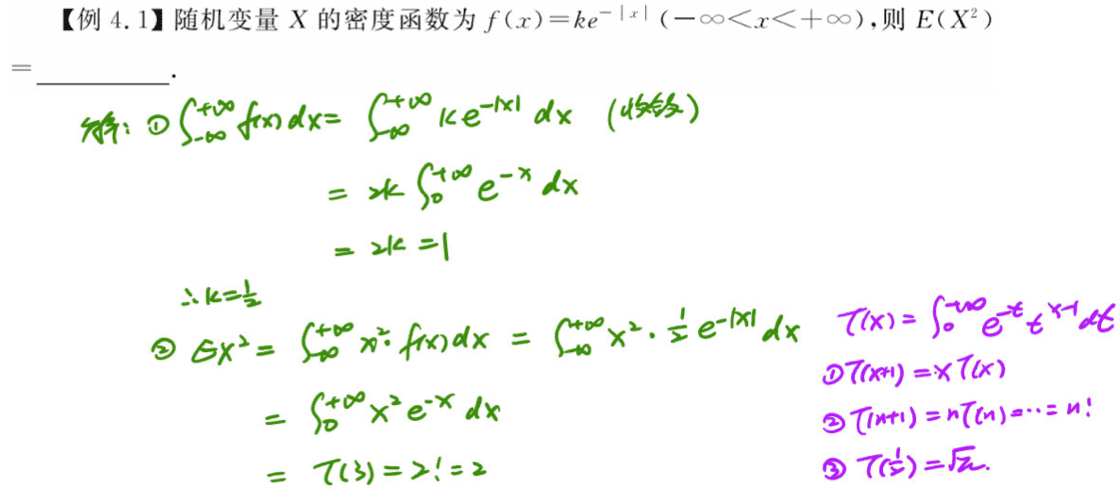 【例 4.1】随机变量 X 的密度函数为 f(x)=ke^{-|x|}(-∞<x<+∞),则 E(X²)
=________.
解: ① ∫_{-∞}^{+∞} f(x)dx = ∫_{-∞}^{+∞} ke^{-|x|} dx (收敛)
= 2k ∫_0^{+∞} e^{-x} dx
= 2k = 1
∴ k = 1/2
② EX² = ∫_{-∞}^{+∞} x²·f(x)dx = ∫_{-∞}^{+∞} x²·1/2 e^{-|x|} dx
= ∫_0^{+∞} x² e^{-x} dx
= Γ(3) = 2! = 2
Γ(x) = ∫_0^{+∞} e^{-t} t^{x-1} dt
① Γ(x+1) = xΓ(x)
② Γ(n+1) = nΓ(n) = ⋯ = n!
③ Γ(1/2) = √π.